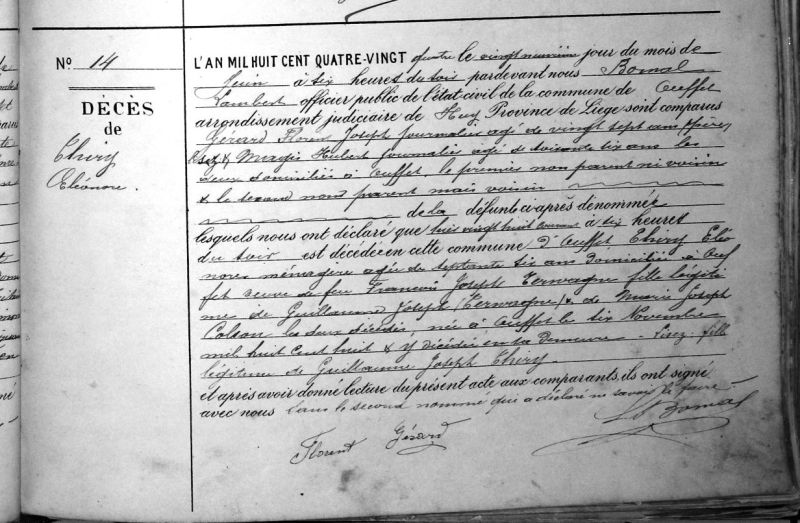 N° 14
DÉCÈS
de
Thiry
Eléonore.
L'AN MIL HUIT CENT QUATRE-VINGT quatre le vingt neuvième jour du mois de
Juin à six heures du soir pardevant nous Bomal
Lambert officier public de l'état civil de la commune de Ouffet
arrondissement judiciaire de Huy Province de Liege sont comparus
Gérard Florent Joseph journalier agé de vingt sept ans
& Magis Hubert journalier agé de soixante six ans les
deux domiciliés à Ouffet, le premier non parent ni voisin
& le second non parent mais voisin
de la défunte ci-après dénommée
lesquels nous ont déclaré que vingt huit courant à six heures
du soir est décédée en cette commune d'Ouffet Thiry Eléo
nore ménagère agée de septante six ans domiciliée à Ouf
fet veuve de feu François Joseph Terwagne fille légiti
me de Guillaume Joseph (Terwagne) & de Marie Joseph
Colson les deux décédés, née à Ouffet le six Novembre
mil huit cent huit & y décédée en sa demeure. Lisez fille
légitime de Guillaume Joseph Thiry
et après avoir donné lecture du présent acte aux comparants, ils ont signé
avec nous sauf le second nommé qui a déclaré ne savoir le faire.
Florent Gérard
L Bomal